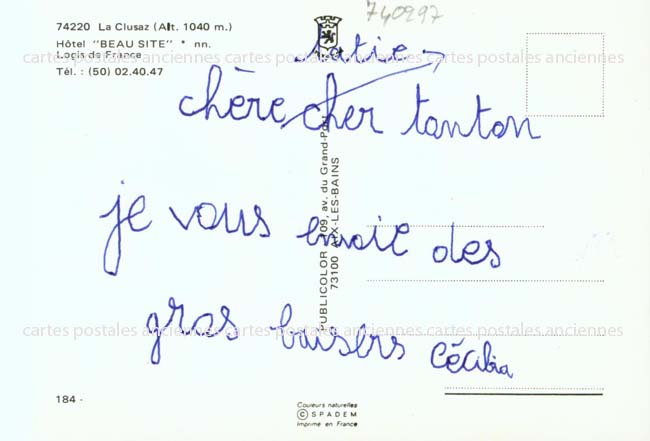 740997
74220 La Clusaz (Alt. 1040 m.)
Hôtel "BEAU SITE" * nn.
Logis de France
Tél. : (50) 02.40.47
tatie
chère cher tonton
je vous envoie des
gros baisers Cécilia
PUBLICOLOR 109, av. du Grand-Port
73100 AIX-LES-BAINS
cartes postales anciennes cartes postales anciennes cartes postales anciennes
cartes postales anciennes cartes postales anciennes cartes postales anciennes
184 -
Couleurs naturelles
© SPADEM
Imprimé en France